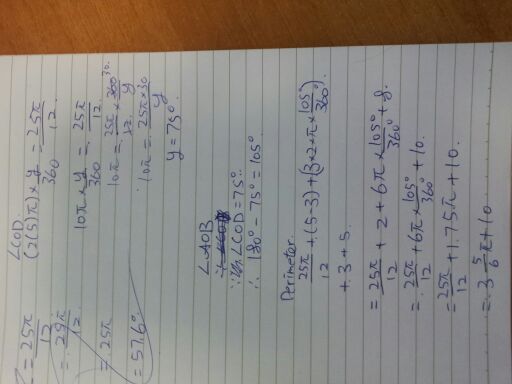 = 25π/12
= 25π/12.
= 25π
= 57.6°
∠COD.
(2(5)π) × y/360 = 25π/12.
10π × y/360 = 25π/12
10π = 25π/12 × 360/y 30.
10π = 25π × 30/y
y = 75°.
∠AOB
∵ ∠COD = 75°
∴ 180° - 75° = 105°
Perimeter.
25π/12 + (5-3) + (3×2×π×105°/360°)
+ 3 + 5.
= 25π/12 + 2 + 6π × 105°/360° + 8.
= 25π/12 + 6π × 105°/360° + 10.
= 25π/12 + 1.75π + 10.
= 3 5/6 π + 10